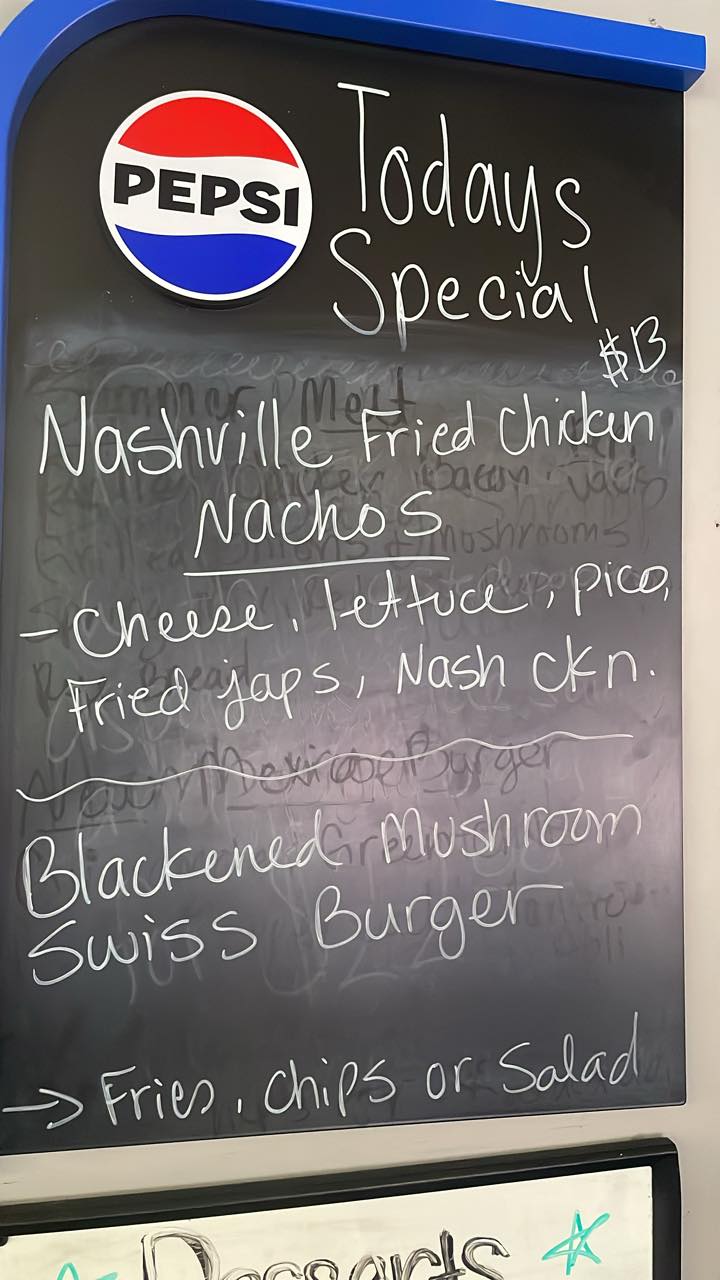 PEPSI
Todays
Special
$13
Nashville Fried Chicken
Nachos
- Cheese, lettuce, pico,
Fried japs, Nash ckn.
Blackened Mushroom
Swiss Burger
→ Fries, chips or Salad
Desserts